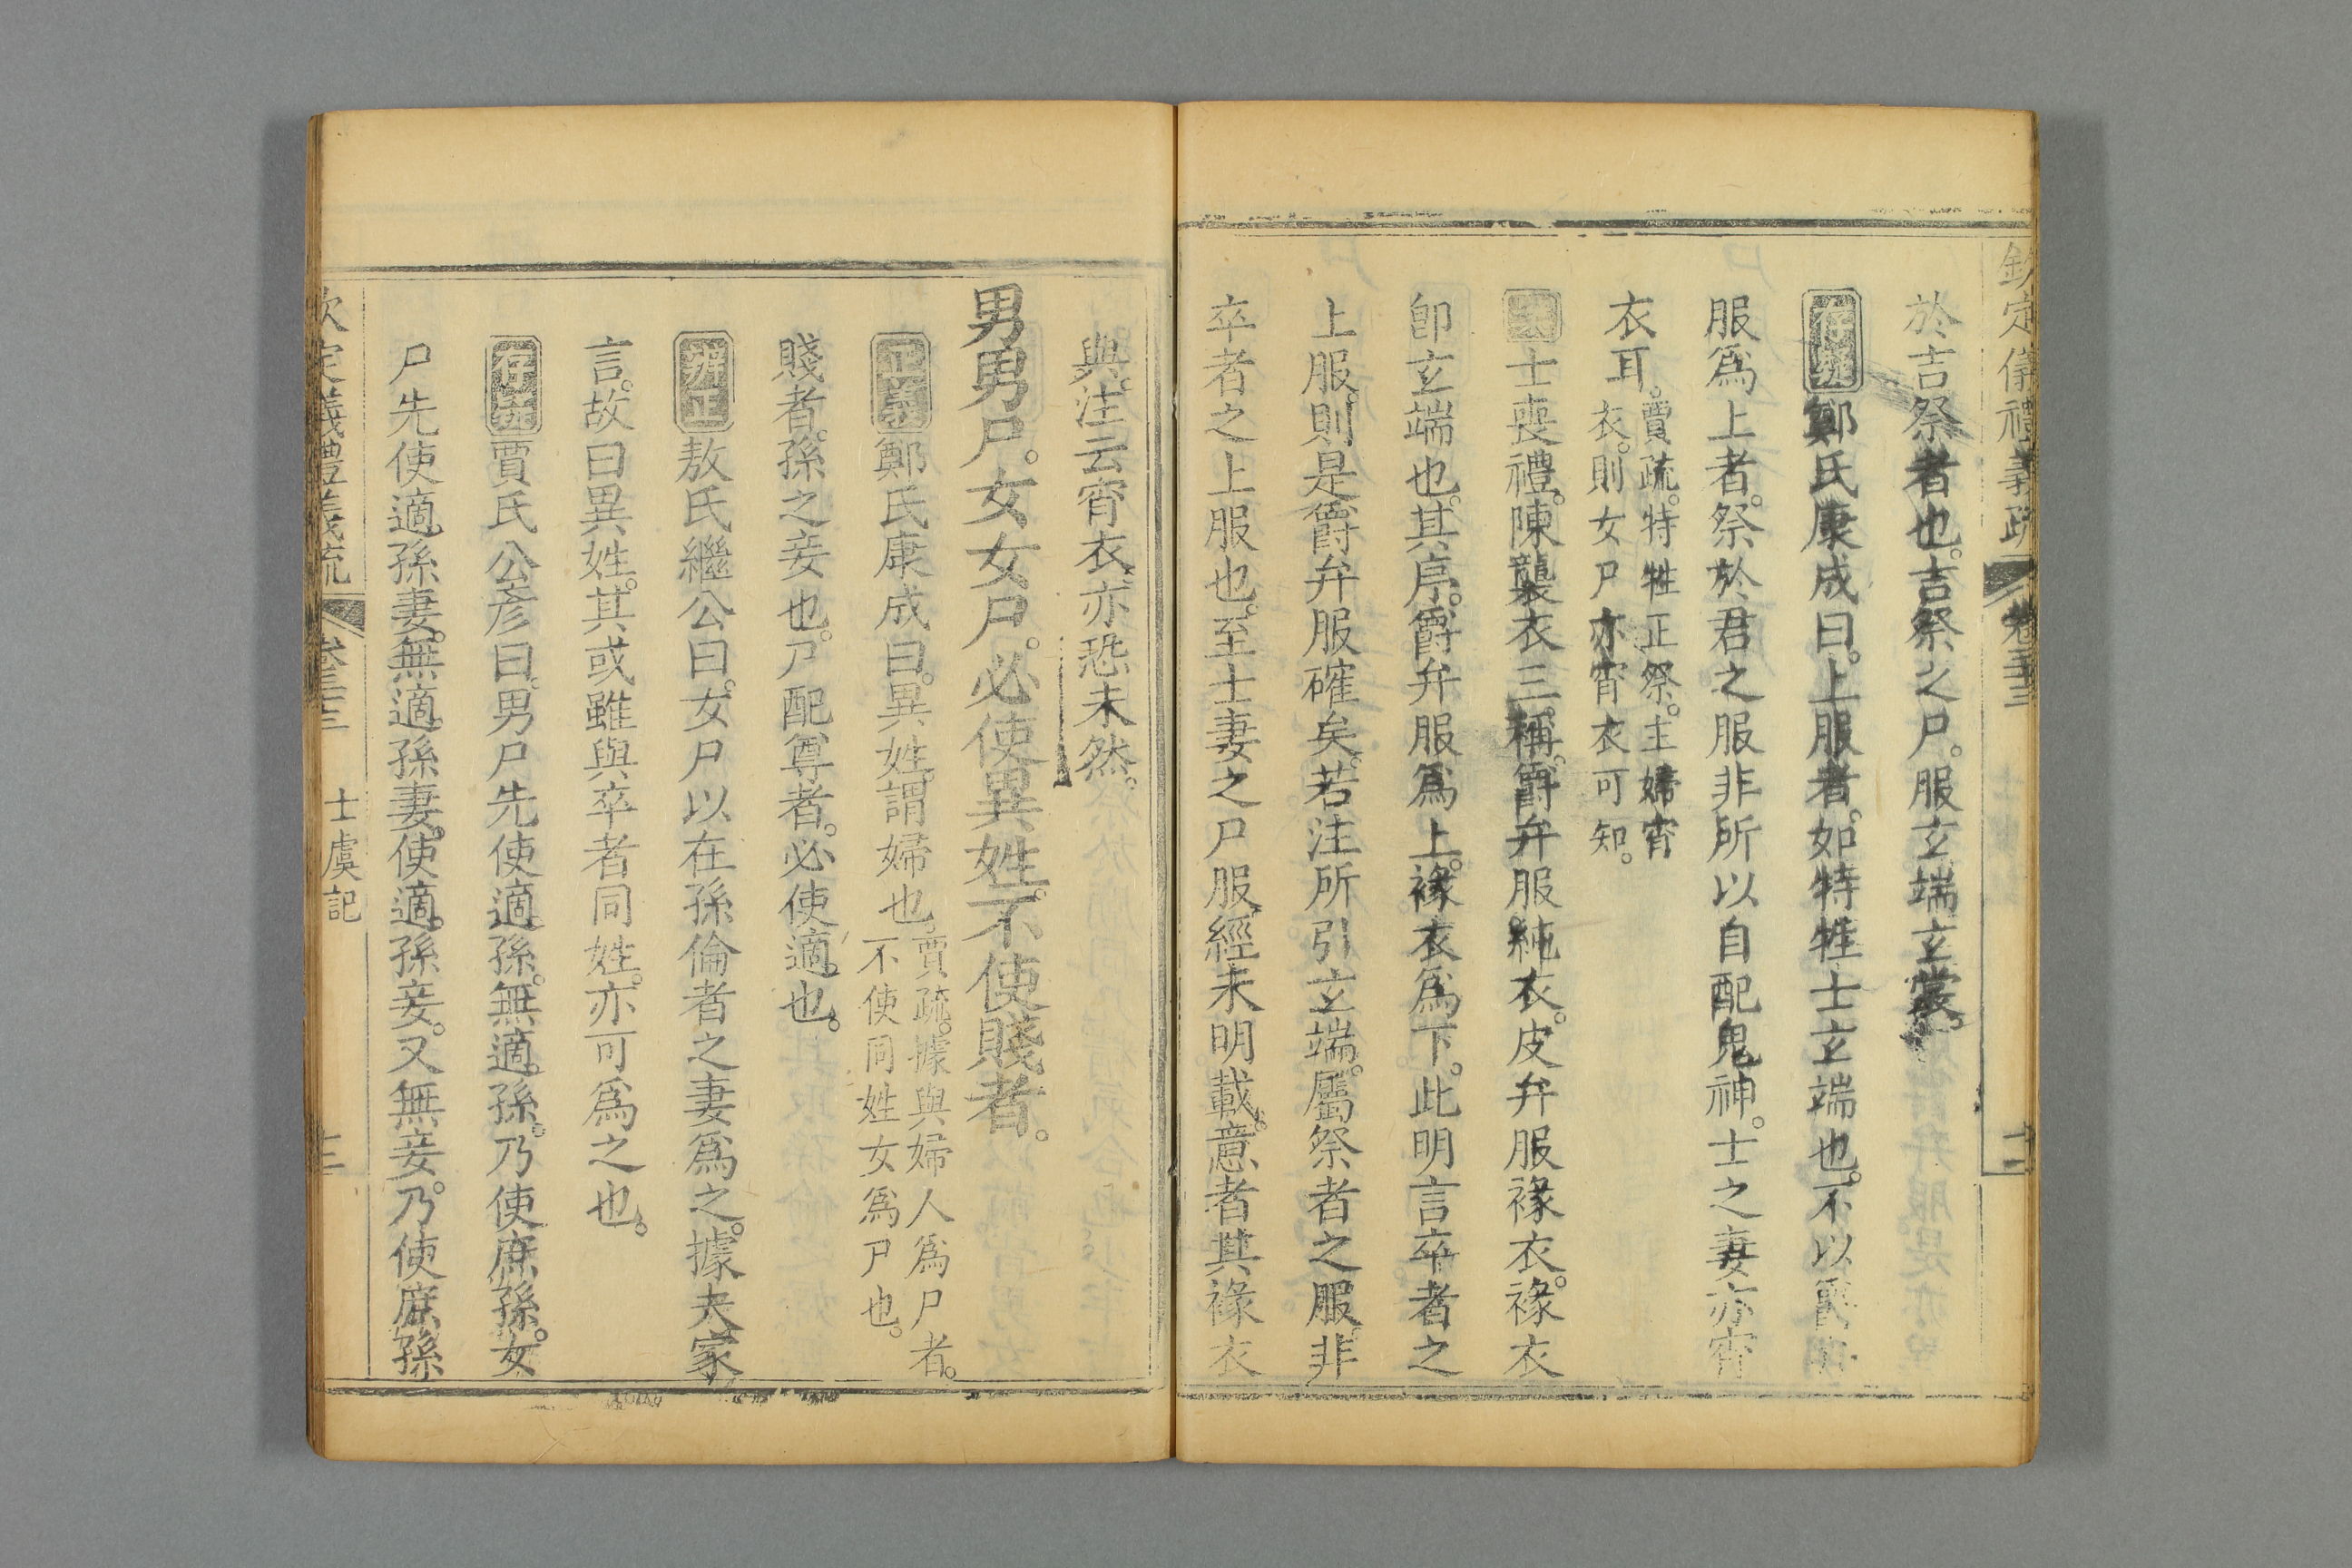 欽定儀禮義疏 卷三十三 十二
於吉祭者也。吉祭之尸。服玄端玄裳。
存疑鄭氏康成曰。上服者。如特牲士玄端也。不以爵弁
服爲上者。祭於君之服非所以自配鬼神。士之妻亦宵
衣耳。賈疏。特牲正祭。主婦宵
衣。則女尸亦宵衣可知。
案士喪禮。陳襲衣三稱。爵弁服純衣。皮弁服褖衣。褖衣
卽玄端也。其序。爵弁服爲上。褖衣爲下。此明言卒者之
上服。則是爵弁服確矣。若注所引玄端。屬祭者之服。非
卒者之上服也。至士妻之尸服經未明載。意者其褖衣
與。注云宵衣。亦恐未然。
男男尸。女女尸。必使異姓。不使賤者。
正義鄭氏康成曰。異姓。謂婦也。賈疏。據與婦人爲尸者。
不使同姓女爲尸也。
賤者。孫之妾也。尸配尊者。必使適也。
辨正敖氏繼公曰。女尸以在孫倫者之妻爲之。據夫家
言。故曰異姓。其或雖與卒者同姓。亦可爲之也。
存疑賈氏公彥曰。男尸先使適孫。無適孫。乃使庶孫。女
尸先使適孫妻。無適孫妻。使適孫妾。又無妾。乃使庶孫
欽定儀禮義疏 卷三十三 士虞記 十三